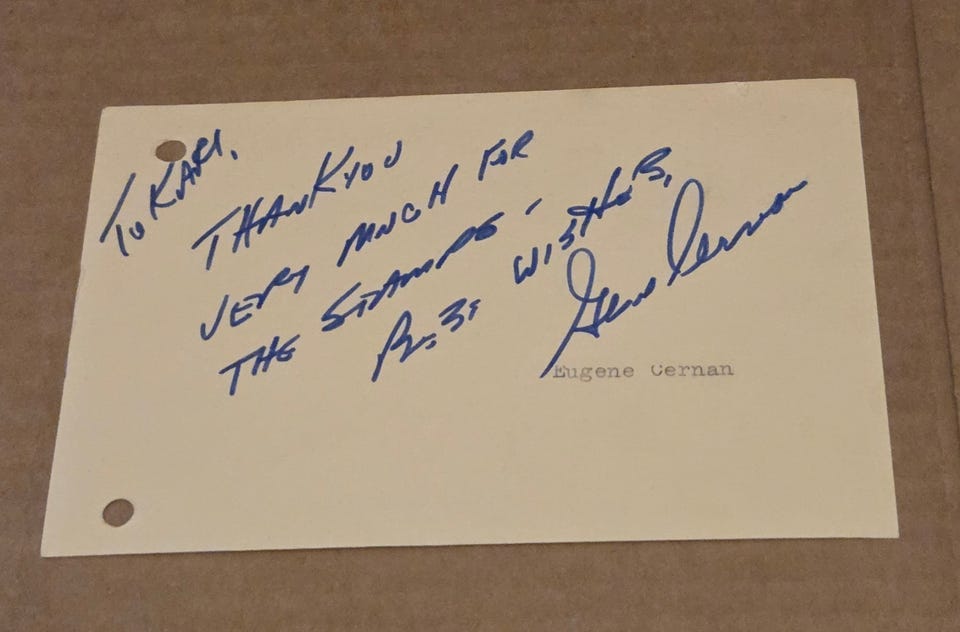 To KARI,
THANK YOU
VERY MUCH FOR
THE STAMPS -
BEST WISHES,
Gene Cernan
Eugene Cernan